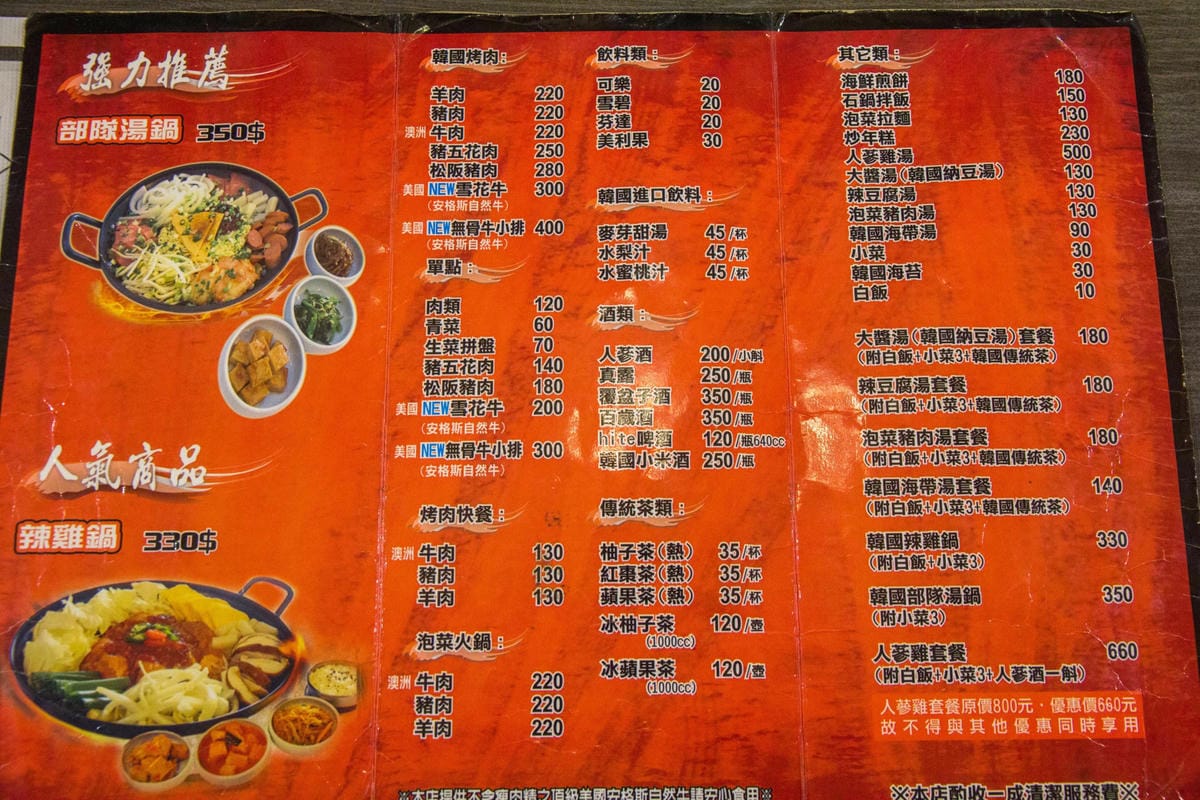 强力推薦
部隊湯鍋 350$
人氣商品
辣雞鍋 330$
韓國烤肉:
羊肉 220
豬肉 220
澳洲 牛肉 220
豬五花肉 250
松阪豬肉 280
美國 NEW雪花牛 300
(安格斯自然牛)
美國 NEW無骨牛小排 400
(安格斯自然牛)
單點:
肉類 120
青菜 60
生菜拼盤 70
豬五花肉 140
松阪豬肉 180
美國 NEW雪花牛 200
(安格斯自然牛)
美國 NEW無骨牛小排 300
(安格斯自然牛)
烤肉快餐:
澳洲 牛肉 130
豬肉 130
羊肉 130
泡菜火鍋:
澳洲 牛肉 220
豬肉 220
羊肉 220
※本店提供不含瘦肉精之頂級美國安格斯自然牛請安心食用※
飲料類:
可樂 20
雪碧 20
芬達 20
美利果 30
韓國進口飲料:
麥芽甜湯 45/杯
水梨汁 45/杯
水蜜桃汁 45/杯
酒類:
人蔘酒 200/小斛
真露 250/瓶
覆盆子酒 350/瓶
百歲酒 350/瓶
hite啤酒 120/瓶640cc
韓國小米酒 250/瓶
傳統茶類:
柚子茶(熱) 35/杯
紅棗茶(熱) 35/杯
蘋果茶(熱) 35/杯
冰柚子茶 120/壺
(1000cc)
冰蘋果茶 120/壺
(1000cc)
其它類:
海鮮煎餅 180
石鍋拌飯 150
泡菜拉麵 130
炒年糕 230
人蔘雞湯 500
大醬湯(韓國納豆湯) 130
辣豆腐湯 130
泡菜豬肉湯 130
韓國海帶湯 90
小菜 30
韓國海苔 30
白飯 10
大醬湯(韓國納豆湯)套餐 180
(附白飯+小菜3+韓國傳統茶)
辣豆腐湯套餐 180
(附白飯+小菜3+韓國傳統茶)
泡菜豬肉湯套餐 180
(附白飯+小菜3+韓國傳統茶)
韓國海帶湯套餐 140
(附白飯+小菜3+韓國傳統茶)
韓國辣雞鍋 330
(附白飯+小菜3)
韓國部隊湯鍋 350
(附小菜3)
人蔘雞套餐 660
(附白飯+小菜3+人蔘酒一斛)
人蔘雞套餐原價800元‧優惠價660元
故不得與其他優惠同時享用
※本店酌收一成清潔服務費※